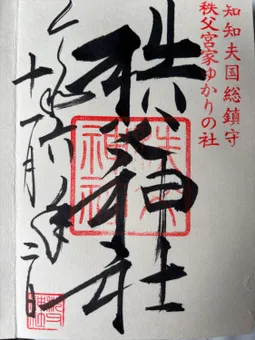 知知夫国総鎮守
秩父宮家ゆかりの社
秩父神社
秩父神社
令和六年
十一月二日